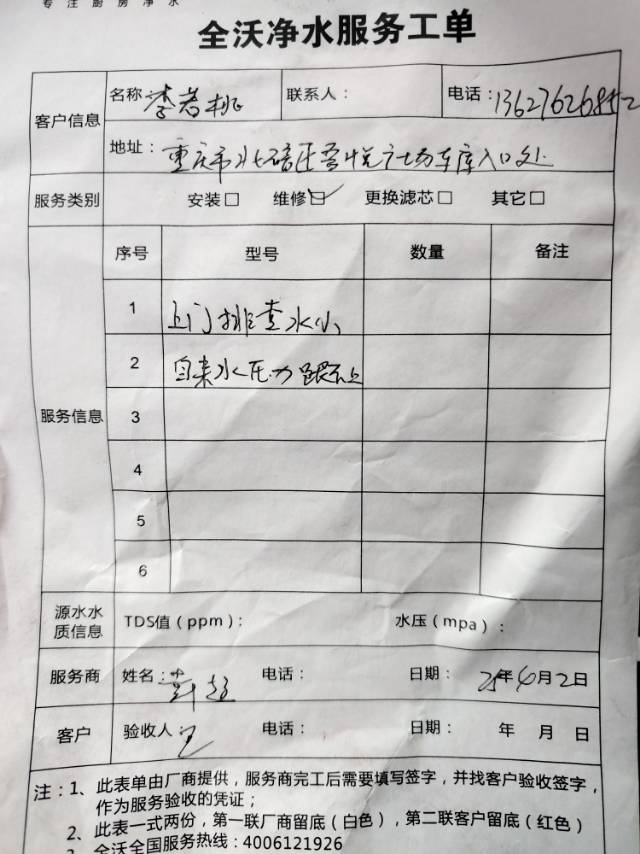 专注厨房净水
全沃净水服务工单
客户信息 名称 李若桃 联系人： 电话：
地址： 重庆市北碚区吾悦广场车库入口处
服务类别 安装□ 维修☑ 更换滤芯□ 其它□
服务信息 序号 型号 数量 备注
1 上门排查水小
2 自来水压力跟不上
3
4
5
6
源水水质信息 TDS值（ppm）： 水压（mpa）：
服务商 姓名： 电话： 日期： 25年4月2日
客户 验收人 电话： 日期： 年 月 日
注：1、此表单由厂商提供，服务商完工后需要填写签字，并找客户验收签字，
作为服务验收的凭证；
2、此表一式两份，第一联厂商留底（白色），第二联客户留底（红色）
全沃全国服务热线：4006121926